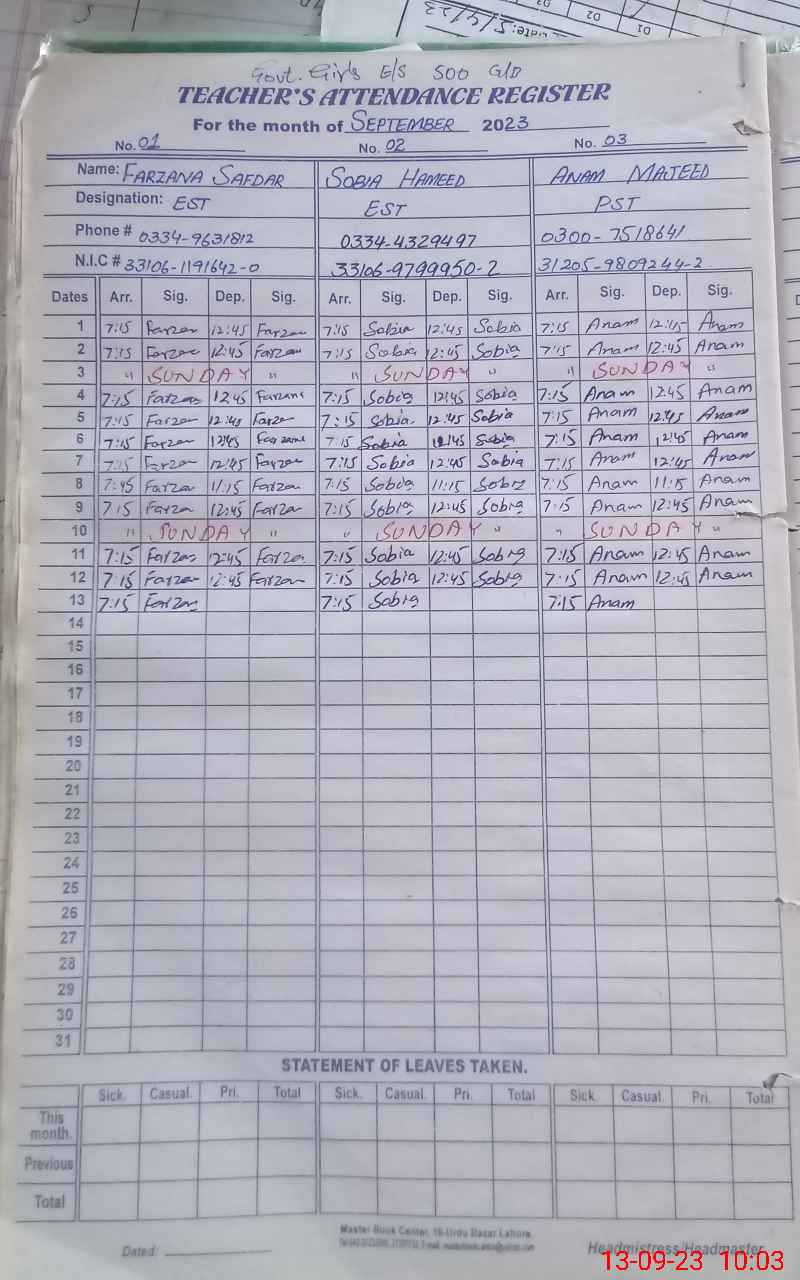 Date: 5/4/23
D2 D1
Govt. Girls E/S 500 G/D
TEACHER'S ATTENDANCE REGISTER
For the month of SEPTEMBER 2023
No. 01 No. 02 No. 03
Name: FARZANA SAFDAR SOBIA HAMEED ANAM MAJEED
Designation: EST EST PST
Phone # 0334-9631812 0334-4329497 0300-7518641
N.I.C # 33106-1191642-0 33106-9799950-2 31205-9809244-2
Dates Arr. Sig. Dep. Sig. Arr. Sig. Dep. Sig. Arr. Sig. Dep. Sig.
1 7:15 Farzan 12:45 Farzan 7:15 Sobia 12:45 Sobia 7:15 Anam 12:45 Anam
2 7:15 Farzan 12:45 Farzan 7:15 Sobia 12:45 Sobia 7:15 Anam 12:45 Anam
3 " SUNDAY " " SUNDAY " " SUNDAY "
4 7:15 Farzan 12:45 Farzana 7:15 Sobia 12:45 Sobia 7:15 Anam 12:45 Anam
5 7:15 Farzan 12:45 Farzan 7:15 Sobia 12:45 Sobia 7:15 Anam 12:45 Anam
6 7:15 Farzan 12:45 Farzana 7:15 Sobia 12:45 Sobia 7:15 Anam 12:45 Anam
7 7:15 Farzan 12:45 Farzan 7:15 Sobia 12:45 Sobia 7:15 Anam 12:45 Anam
8 7:45 Farzan 11:15 Farzan 7:15 Sobia 11:15 Sobia 7:15 Anam 11:15 Anam
9 7:15 Farzan 12:45 Farzan 7:15 Sobia 12:45 Sobia 7:15 Anam 12:45 Anam
10 " SUNDAY " " SUNDAY " " SUNDAY "
11 7:15 Farzan 12:45 Farzan 7:15 Sobia 12:45 Sobia 7:15 Anam 12:45 Anam
12 7:15 Farzan 12:45 Farzan 7:15 Sobia 12:45 Sobia 7:15 Anam 12:45 Anam
13 7:15 Farzan 7:15 Sobia 7:15 Anam
14
15
16
17
18
19
20
21
22
23
24
25
26
27
28
29
30
31
STATEMENT OF LEAVES TAKEN.
Sick. Casual. Pri. Total Sick. Casual. Pri. Total Sick. Casual. Pri. Total
This month.
Previous
Total
Master Book Center, 16-Urdu Bazar Lahore
Dated: Headmistress/Headmaster
13-09-23 10:03